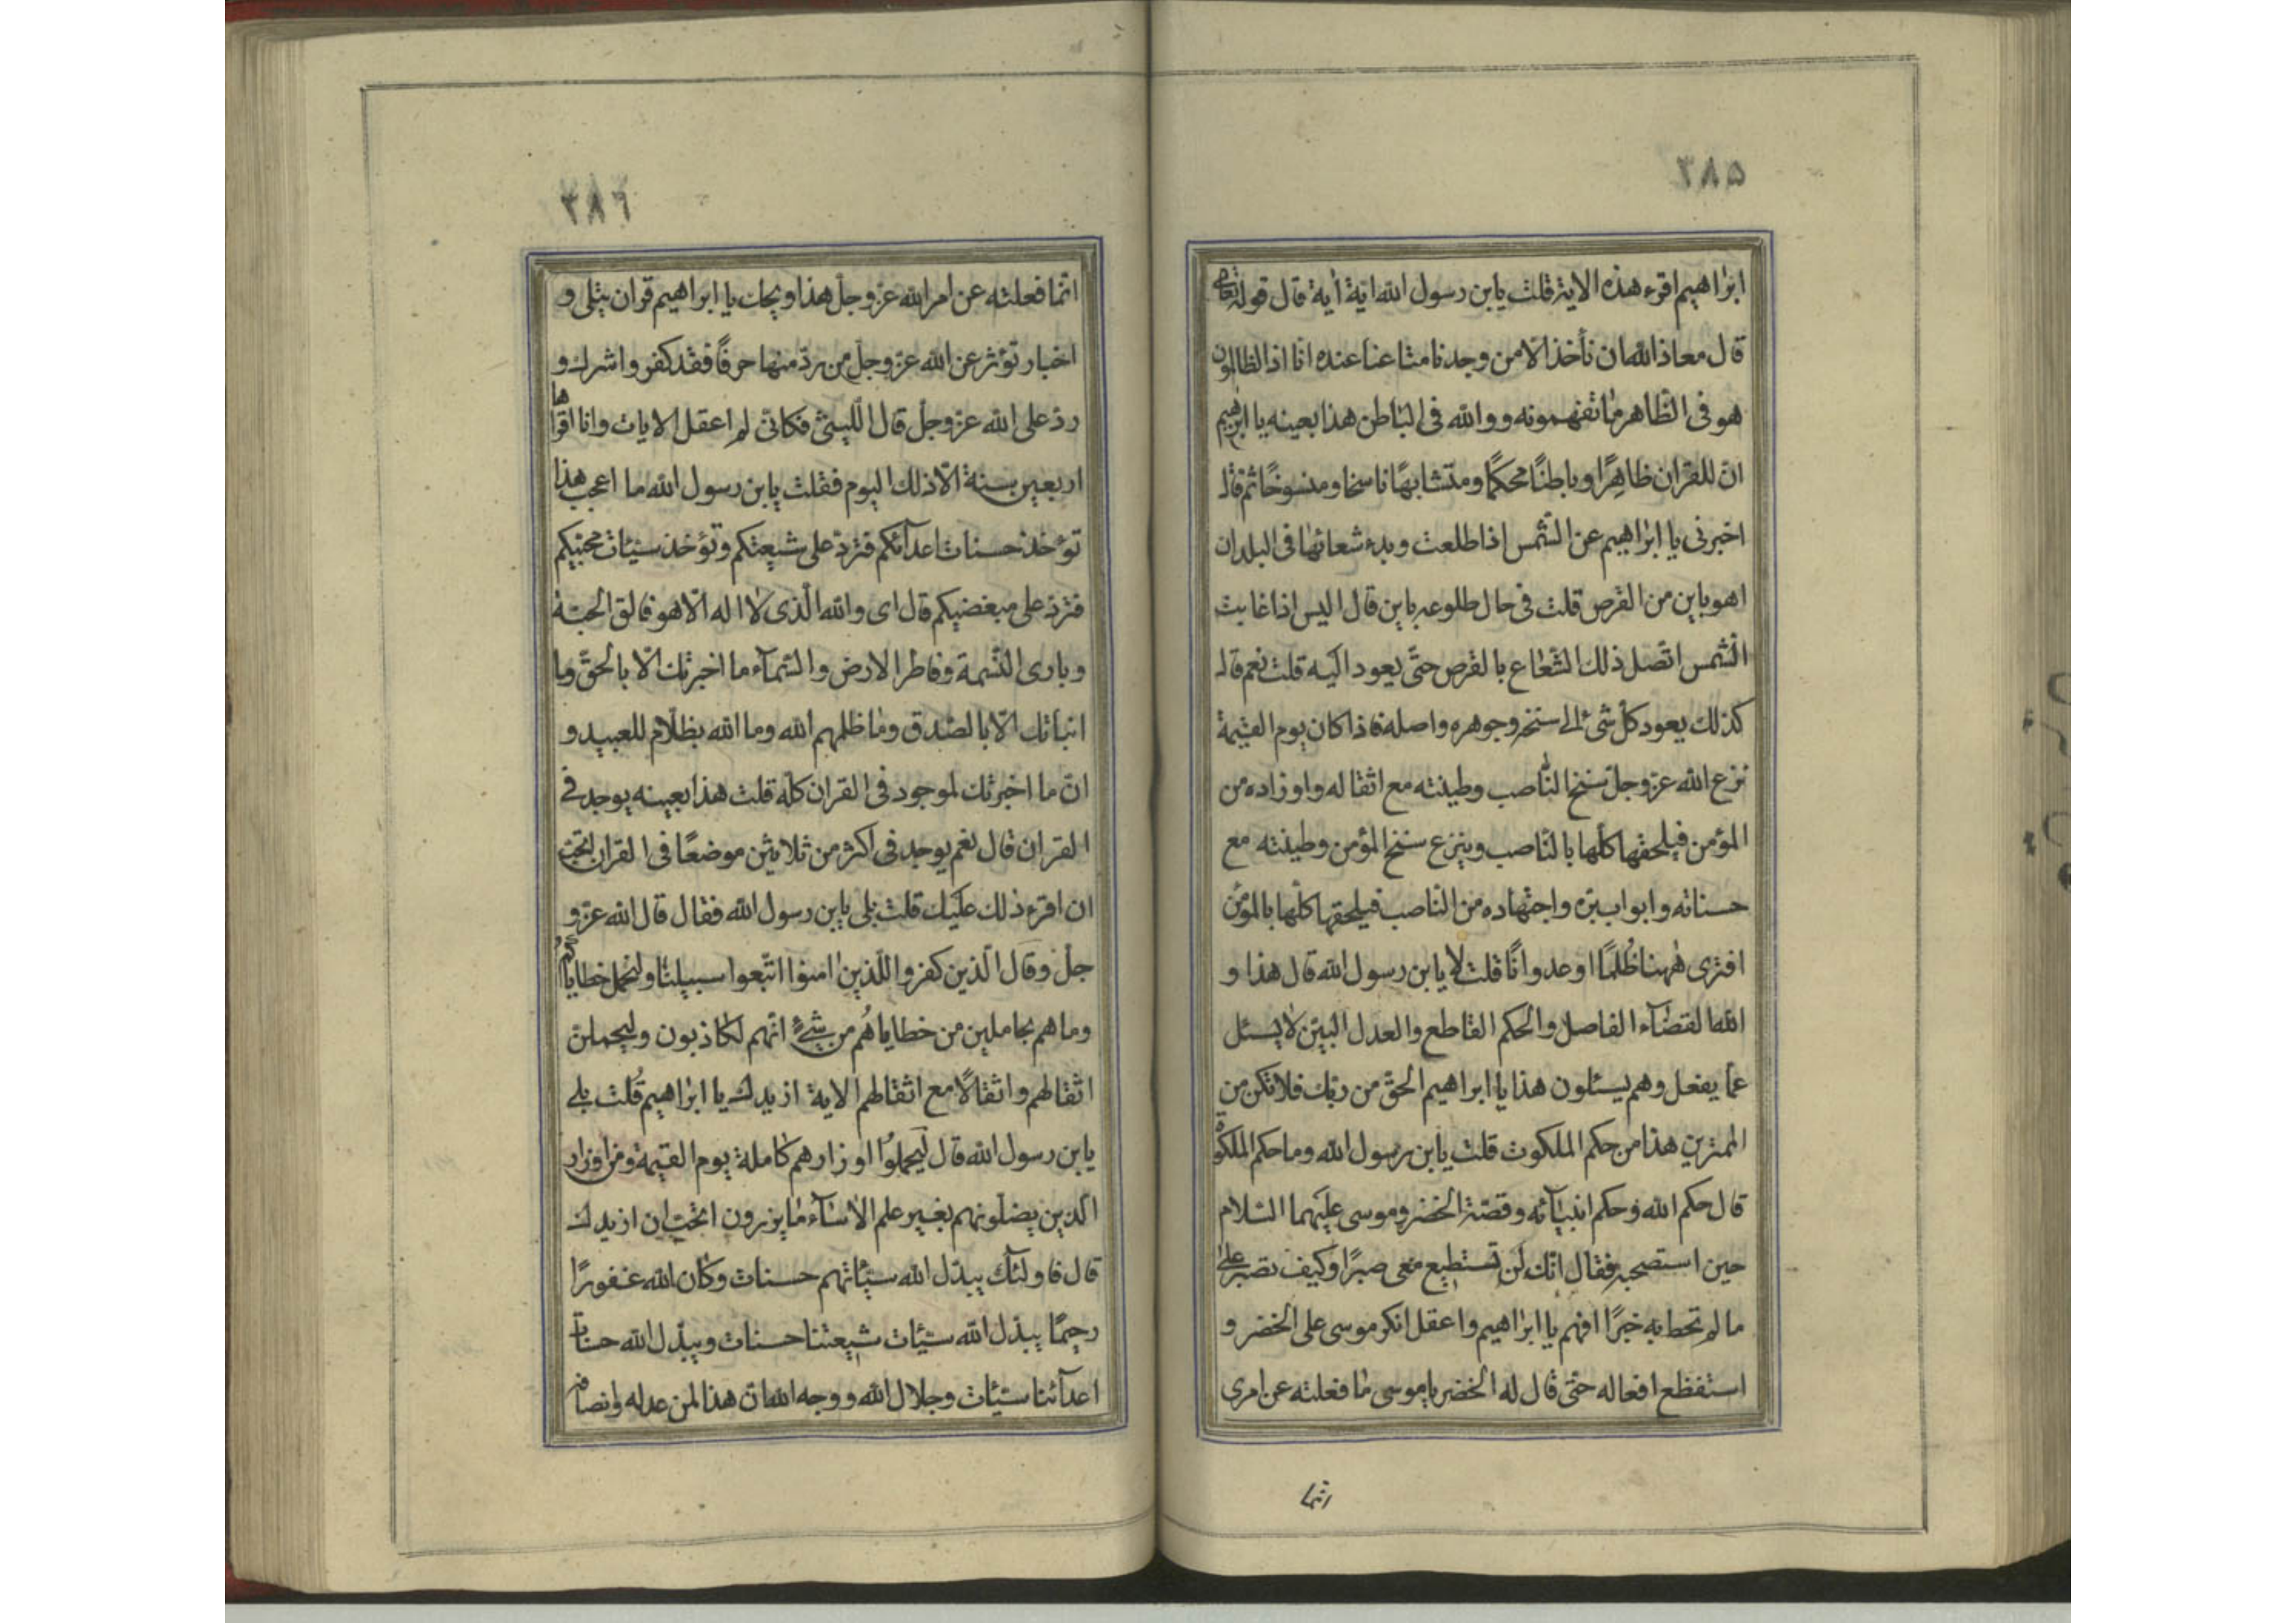 ۵۸۳
ابراهیم اقرء هذه الایة قلت یابن رسول الله ایة أیة قال قوله تعالی
قال معاذ الله ان نأخذ الا من وجدنا متاعنا عنده انا اذا لظالمون
هو فی الظاهر ما تفهمونه و والله فی الباطن هذا بعینه یا ابرهیم
ان للقران ظاهرًا و باطنًا محکمًا و متشابهًا ناسخا و منسوخًا ثم قال
اخبرنی یا ابراهیم عن الشمس اذا طلعت و بدء شعاعها فی البلدان
اهو باین من القرص قلت فی حال طلوعه باین قال الیس اذا غابت
الشمس اتصل ذلك الشعاع بالقرص حتی یعود الیه قلت نعم قال
کذلك یعود کل شیء الی سنخه و جوهره و اصله فاذا کان یوم القیمة
نزع الله عز و جل سنخ الناصب و طینته مع اثقاله و اوزاره من
المؤمن فیلحقها کلها بالناصب و ینزع سنخ المؤمن و طینته مع
حسناته و ابواب بره و اجتهاده من الناصب فیلحقها کلها بالمؤمن
افتری ههنا ظُلمًا او عدوانًا قلت لا یابن رسول الله قال هذا و
الله القضآء الفاصل و الحکم القاطع و العدل البین لا یسئل
عما یفعل و هم یسئلون هذا یا ابراهیم الحق من ربك فلا تکن من
الممترین هذا من حکم الملکوت قلت یابن رسول الله و ما حکم الملکوت
قال حکم الله و حکم انبیآئه و قصة الخضر و موسی علیهما السلام
حین استصحبه فقال انك لن تستطیع معی صبرًا و کیف تصبر علی
ما لم تحط به خبرًا افهم یا ابراهیم و اعقل انکر موسی علی الخضر و
استفظع افعاله حتی قال له الخضر یا موسی ما فعلته عن امری
انما
انما فعلته عن امر الله عز و جل هذا ویحك یا ابراهیم قران یتلی و
اخبار تؤثر عن الله عز و جل من رد منها حرفًا فقد کفر و اشرك و
رد علی الله عز و جل قال اللیثی فکانی لم اعقل الایات و انا اقراها
اربعین سنة الا ذلك الیوم فقلت یابن رسول الله ما اعجب هذا
تؤخذ حسنات اعدآئکم فترد علی شیعتکم و تؤخذ سیئات محبیکم
فترد علی مبغضیکم قال ای و الله الذی لا اله الا هو فالق الحبة
و باری النسمة و فاطر الارض و السمآء ما اخبرتك الا بالحق و ما
انبأتك الا بالصدق و ما ظلمهم الله و ما الله بظلام للعبید و
ان ما اخبرتك لموجود فی القران کله قلت هذا بعینه یوجد فی
القران قال نعم یوجد فی اکثر من ثلاثین موضعًا فی القران اتحب
ان اقرء ذلك علیك قلت بلی یابن رسول الله فقال قال الله عز و
جل و قال الذین کفروا للذین امنوا اتبعوا سبیلنا و لنحمل خطایاکم
و ما هم بحاملین من خطایاهُم من شیءٍ انهم لکاذبون و لیحملن
اثقالهم و اثقالًا مع اثقالهم الایة ازیدك یا ابراهیم قُلت بلی
یابن رسول الله قال لیحملوا اوزارهم کاملة یوم القیمة و من اوزار
الذین یضلونهم بغیر علم الا سآء ما یزرون اتحب ان ازیدك
قال فاولئك یبدل الله سیئاتهم حسنات و کان الله غفورًا
رحیمًا یبدل الله سیئات شیعتنا حسنات و یبدل الله حسنات
اعدآئنا سیئات و جلال الله و وجه الله ان هذا لمن عدله و انصافه